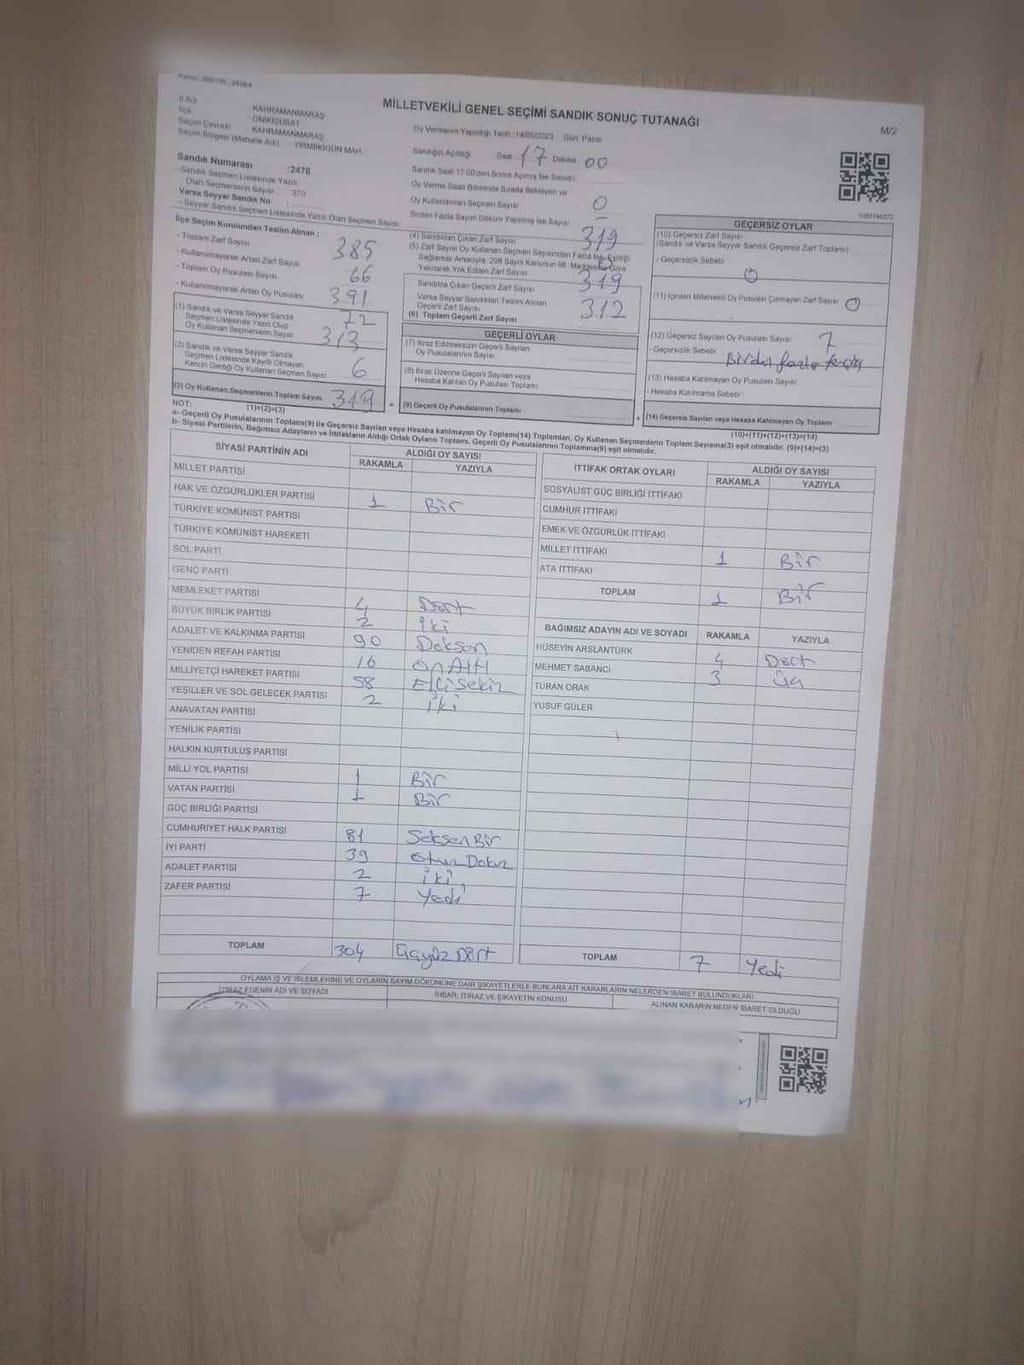 İl Adı KAHRAMANMARAŞ
İlçe ONİKİŞUBAT
Seçim Çevresi KAHRAMANMARAŞ
Seçim Bölgesi (Mahalle Adı) YİRMİİKİGÜN MAH.
MİLLETVEKİLİ GENEL SEÇİMİ SANDIK SONUÇ TUTANAĞI
M/2
Oy Vermenin Yapıldığı Tarih :14/05/2023 Gün: Pazar
Sandığın Açıldığı Saat 17 Dakika 00
Sandık Saat 17:00'den Sonra Açılmış İse Sebebi
Oy Verme Saati Bitiminde Sırada Bekleyen ve
Oy Kullandırılan Seçmen Sayısı 0
Birden Fazla Sayım Döküm Yapılmış İse Sayısı -
Sandık Numarası :2478
-Sandık Seçmen Listesinde Yazılı
Olan Seçmenlerin Sayısı : 370
Varsa Seyyar Sandık No :
- Seyyar Sandık Seçmen Listesinde Yazılı Olan Seçmen Sayısı:
İlçe Seçim Kurulundan Teslim Alınan :
- Toplam Zarf Sayısı 385
- Kullanılmayarak Artan Zarf Sayısı 66
- Toplam Oy Pusulası Sayısı 391
- Kullanılmayarak Artan Oy Pusulası 72
(1) Sandık ve Varsa Seyyar Sandık
Seçmen Listesinde Yazılı Olup
Oy Kullanan Seçmenlerin Sayısı 313
(2) Sandık ve Varsa Seyyar Sandık
Seçmen Listesinde Kayıtlı Olmayan
Kanun Gereği Oy Kullanan Seçmen Sayısı 6
(3) Oy Kullanan Seçmenlerin Toplam Sayısı 319
(1)+(2)=(3)
(4) Sandıktan Çıkan Zarf Sayısı 319
(5) Zarf Sayısı Oy Kullanan Seçmen Sayısından Fazla İse, Eşitliği
Sağlamak Amacıyla; 298 Sayılı Kanunun 98. Maddesine Göre
Yakılarak Yok Edilen Zarf Sayısı
Sandıkta Çıkan Geçerli Zarf Sayısı 319
Varsa Seyyar Sandıktan Teslim Alınan
Geçerli Zarf Sayısı
(6) Toplam Geçerli Zarf Sayısı 312
GEÇERLİ OYLAR
(7) İtiraz Edilmeksizin Geçerli Sayılan
Oy Pusulalarının Sayısı
(8) İtiraz Üzerine Geçerli Sayılan veya
Hesaba Katılan Oy Pusulası Toplamı
(9) Geçerli Oy Pusulalarının Toplamı
1083746372
GEÇERSİZ OYLAR
(10) Geçersiz Zarf Sayısı
(Sandık ve Varsa Seyyar Sandık Geçersiz Zarf Toplamı)
- Geçersizlik Sebebi
0
(11) İçinden Milletvekili Oy Pusulası Çıkmayan Zarf Sayısı 0
(12) Geçersiz Sayılan Oy Pusulası Sayısı 7
- Geçersizlik Sebebi Birden fazla
(13) Hesaba Katılmayan Oy Pusulası Sayısı
- Hesaba Katılmama Sebebi
(14) Geçersiz Sayılan veya Hesaba Katılmayan Oy Toplamı
(10)+(11)+(12)+(13)=(14)
NOT:
a- Geçerli Oy Pusulalarının Toplamı(9) ile Geçersiz Sayılan veya Hesaba katılmayan Oy Toplamı(14) Toplamları, Oy Kullanan Seçmenlerin Toplam Sayısına(3) eşit olmalıdır. (9)+(14)=(3)
b- Siyasi Partilerin, Bağımsız Adayların ve İttifakların Aldığı Ortak Oyların Toplamı, Geçerli Oy Pusulalarının Toplamına(9) eşit olmalıdır.
SİYASİ PARTİNİN ADI ALDIĞI OY SAYISI
RAKAMLA YAZIYLA
MİLLET PARTİSİ
HAK VE ÖZGÜRLÜKLER PARTİSİ 1 Bir
TÜRKİYE KOMÜNİST PARTİSİ
TÜRKİYE KOMÜNİST HAREKETİ
SOL PARTİ
GENÇ PARTİ
MEMLEKET PARTİSİ 4 Dört
BÜYÜK BİRLİK PARTİSİ 2 İki
ADALET VE KALKINMA PARTİSİ 90 Doksan
YENİDEN REFAH PARTİSİ 16 On Altı
MİLLİYETÇİ HAREKET PARTİSİ 58 Elli Sekiz
YEŞİLLER VE SOL GELECEK PARTİSİ 2 İki
ANAVATAN PARTİSİ
YENİLİK PARTİSİ
HALKIN KURTULUŞ PARTİSİ
MİLLİ YOL PARTİSİ 1 Bir
VATAN PARTİSİ 1 Bir
GÜÇ BİRLİĞİ PARTİSİ
CUMHURİYET HALK PARTİSİ 81 Seksen Bir
İYİ PARTİ 39 Otuz Dokuz
ADALET PARTİSİ 2 İki
ZAFER PARTİSİ 7 Yedi
TOPLAM 304 Üçyüz Dört
İTTİFAK ORTAK OYLARI ALDIĞI OY SAYISI
RAKAMLA YAZIYLA
SOSYALİST GÜÇ BİRLİĞİ İTTİFAKI
CUMHUR İTTİFAKI
EMEK VE ÖZGÜRLÜK İTTİFAKI
MİLLET İTTİFAKI 1 Bir
ATA İTTİFAKI
TOPLAM 1 Bir
BAĞIMSIZ ADAYIN ADI VE SOYADI RAKAMLA YAZIYLA
HÜSEYİN ARSLANTÜRK 4 Dört
MEHMET SABANCI 3 Üç
TURAN ORAK
YUSUF GÜLER
TOPLAM 7 Yedi
OYLAMA İŞ VE İŞLEMLERİNE VE OYLARIN SAYIM DÖKÜMÜNE DAİR ŞİKAYETLERLE BUNLARA AİT KARARLARIN NELERDEN İBARET BULUNDUKLARI
İTİRAZ EDENİN ADI VE SOYADI İHBAR, İTİRAZ VE ŞİKAYETİN KONUSU ALINAN KARARIN NEDEN İBARET OLDUĞU